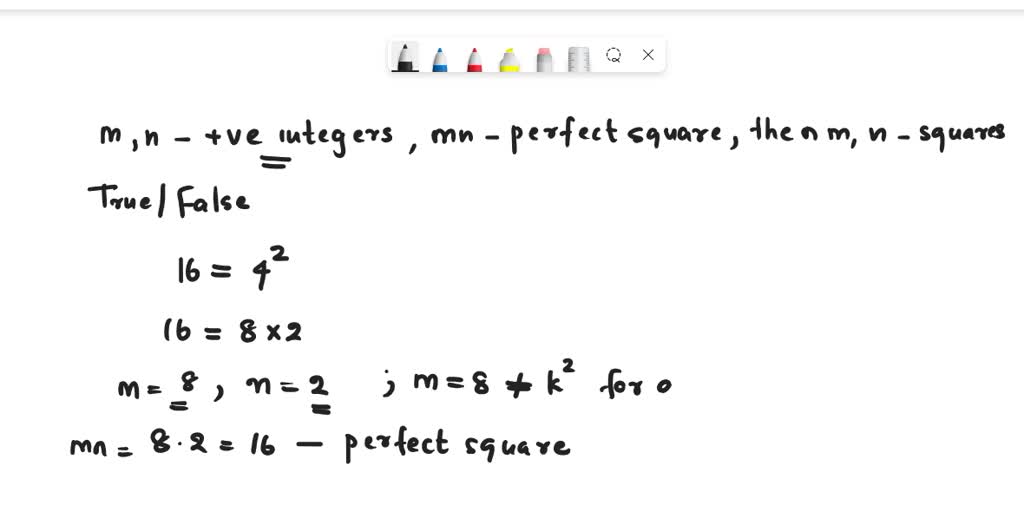 m, n - +ve integers, mn - perfect square, then m, n - squares
True/False
16 = 4²
16 = 8 × 2
m = 8, n = 2 ; m = 8 ≠ k² for o
mn = 8 · 2 = 16 — perfect square